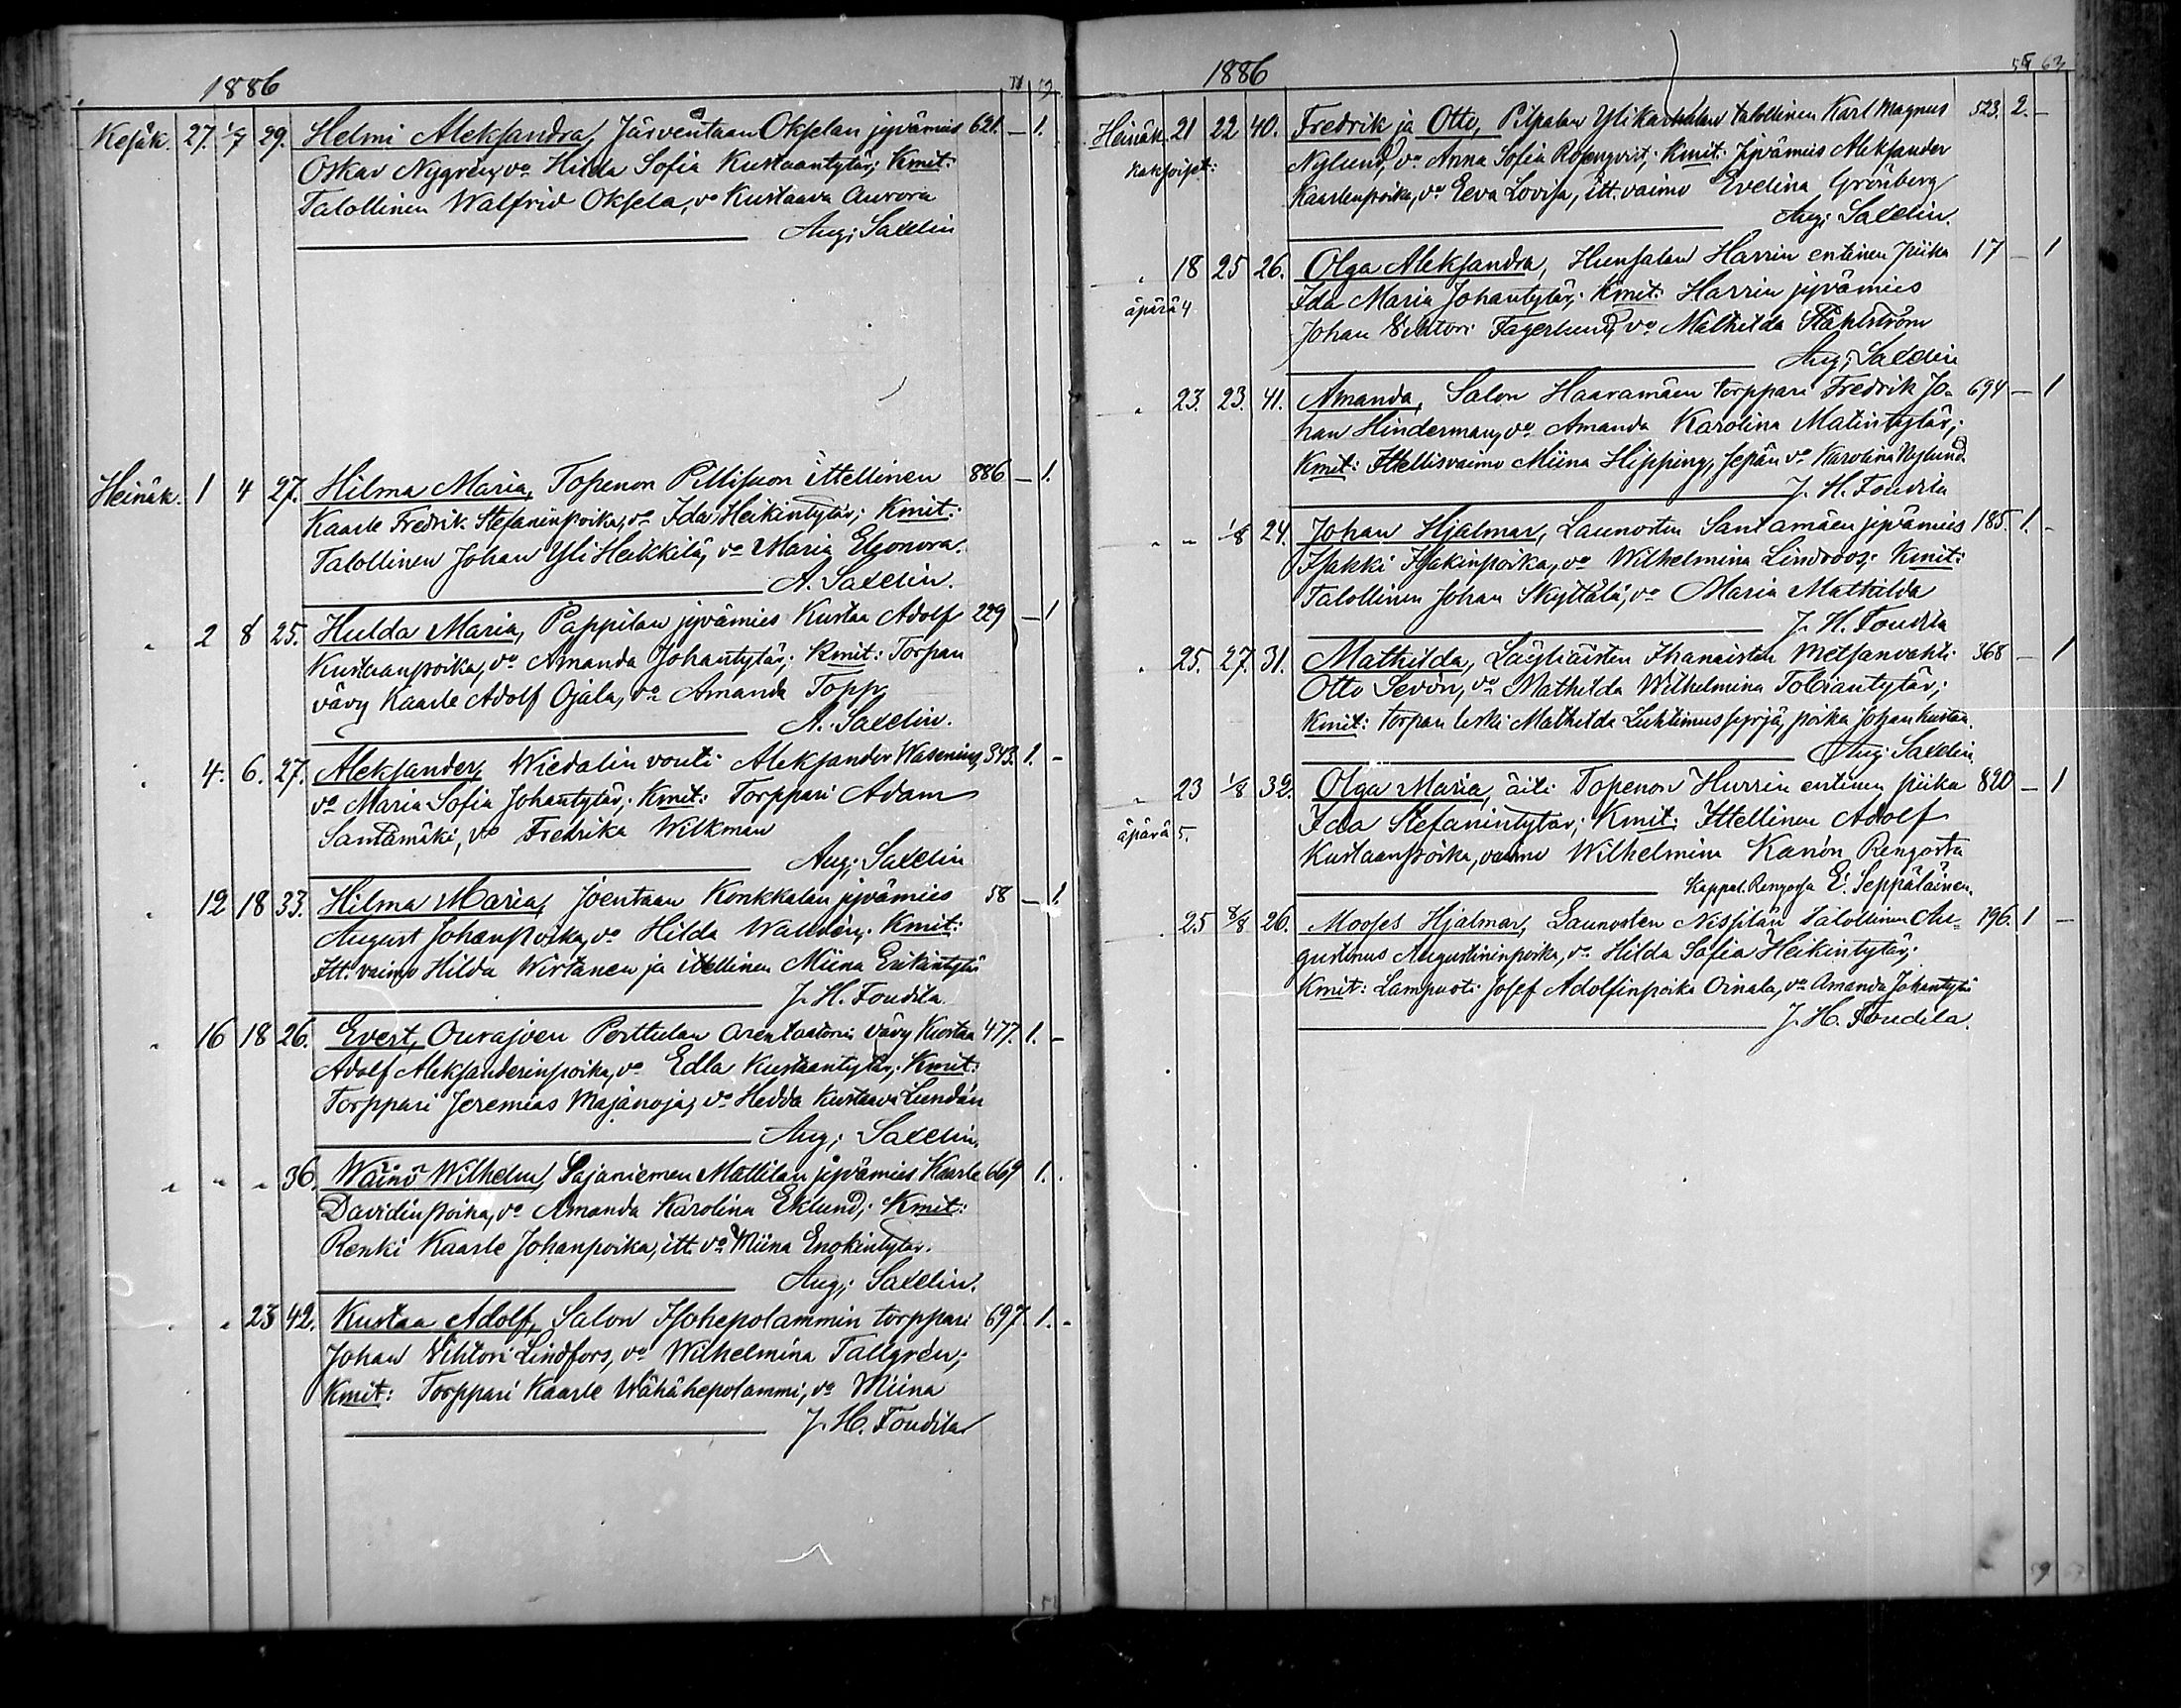 1886
Kesäk. 27. 1/7 29. Helmi Aleksandra, Järventaan Okselan jyvämies 621. — 1.
Oskar Nygrén, vo Hilda Sofia Kustaantytär; Kmit:
Talollinen Walfrid Oksela, vo Kustaava Aurora
Aug; Saxelin
Heinäk. 1 4 27. Hilma Maria, Topenon Pillisuon ittellinen 886 — 1.
Kaarle Fredrik Stefaninpoika, vo Ida Heikintytär; Kmit:
Talollinen Johan Yli Heikkilä, vo Maria Eleonora.
A. Saxelin.
" 2 8 25. Hulda Maria, Pappilan jyvämies Kustaa Adolf 229 — 1
Kustaanpoika, vo Amanda Johantytär; Kmit: Torpan
vävy Kaarle Adolf Ojala, vo Amanda Topp,
A. Saxelin.
" 4. 6. 27. Aleksander, Wiedalin vouti Aleksander Wasenius, 343. 1. -
vo Maria Sofia Johantytär; Kmit: Torppari Adam
Santamäki, vo Fredrika Wilkman
Aug; Saxelin
" 12 18 33. Hilma Maria, Joentaan Konkkalan jyvämies 58 — 1.
August Johanpoika, vo Hilda Waldén; Kmit:
Itt. vaimo Hilda Wirtanen ja itellinen Miina Erikintytär
J. H. Foudila.
" 16 18 26. Evert, Ourajoen Porttulan arentaatorin vävy Kustaa 477. 1. -
Adolf Aleksanderinpoika, vo Edla Kustaantytär; Kmit:
Torppari Jeremias Majanoja, vo Hedda Kustaava Lundén
Aug; Saxelin.
" " " 36. Wäinö Wilhelm, Sajaniemen Mattilan jyvämies Kaarle 669 1. .
Davidinpoika, vo Amanda Karolina Eklund; Kmit:
Renki Kaarle Johanpoika, itt. vo Miina Enokintytär.
Aug; Saxelin.
" " 23 42. Kustaa Adolf, Salon Isohepolammin torppari 697. 1. -
Johan Vihtori Lindfors, vo Wilhelmina Tallgrén;
Kmit: Torppari Kaarle Wähähepolammi, vo Miina
J. H. Foudila
1886
Heinäk. 21 22 40. Fredrik ja Otto, Pilpalan Talollinen Karl Magnus 523. 2. -
kaksoiset: Nylund, vo Anna Sofia Rosenqvist; Kmit: Jyvämies Aleksander
Kaarlenpoika, vo Eeva Lovisa, itt. vaimo Evelina Grönberg
Aug; Saxelin.
" 18 25 26. Olga Aleksandra, Hunsalan Harrin entinen piika 17 — 1
äpärä 4 Ida Maria Johantytär; Kmit: Harrin jyvämies
Johan Vihtori Fagerlund, vo Mathilda Ståhlström
Aug; Saxelin
" 23. 23. 41. Amanda, Salon Haaramäen torppari Fredrik Jo- 694 — 1
han Hinderman, vo Amanda Karolina Matintytär;
Kmit: Ittellisvaimo Miina Hipping, sepän vo Karolina Nylund.
J. H. Foudila
" " 1/8 24. Johan Hjalmar, Launosten Santamäen jyvämies 185. 1. -
Isakki Isakinpoika, vo Wilhelmina Lindroos; Kmit:
Talollinen Johan Skyttälä, vo Maria Mathilda
J. H. Foudila
" 25. 27. 31. Mathilda, Läyliäisten Ihanaisten Metsänvahti 368 — 1
Otto Sevón, vo Mathilda Wilhelmina Tobiantytär;
Kmit: torpan leski Mathilda poika Johan Kustaa.
Aug; Saxelin
" 23 1/8 32. Olga Maria, äiti Topenon Hurrin entinen piika 820 — 1
äpärä 5. Ida Stefanintytär; Kmit: Ittellinen Adolf
Kustaanpoika, vaimo Wilhelmina Kanón Rengosta
Kappal. Rengossa E. Seppäläinen.
" 25 8/8 26. Mooses Hjalmar, Launosten Nissilän Talollinen Au- 196. 1 —
gustinus Augustininpoika, vo Hilda Sofia Heikintytär;
Kmit: Lampuoti Josef Adolfinpoika Oinala, vo Amanda Johantytär
J. H. Foudila.